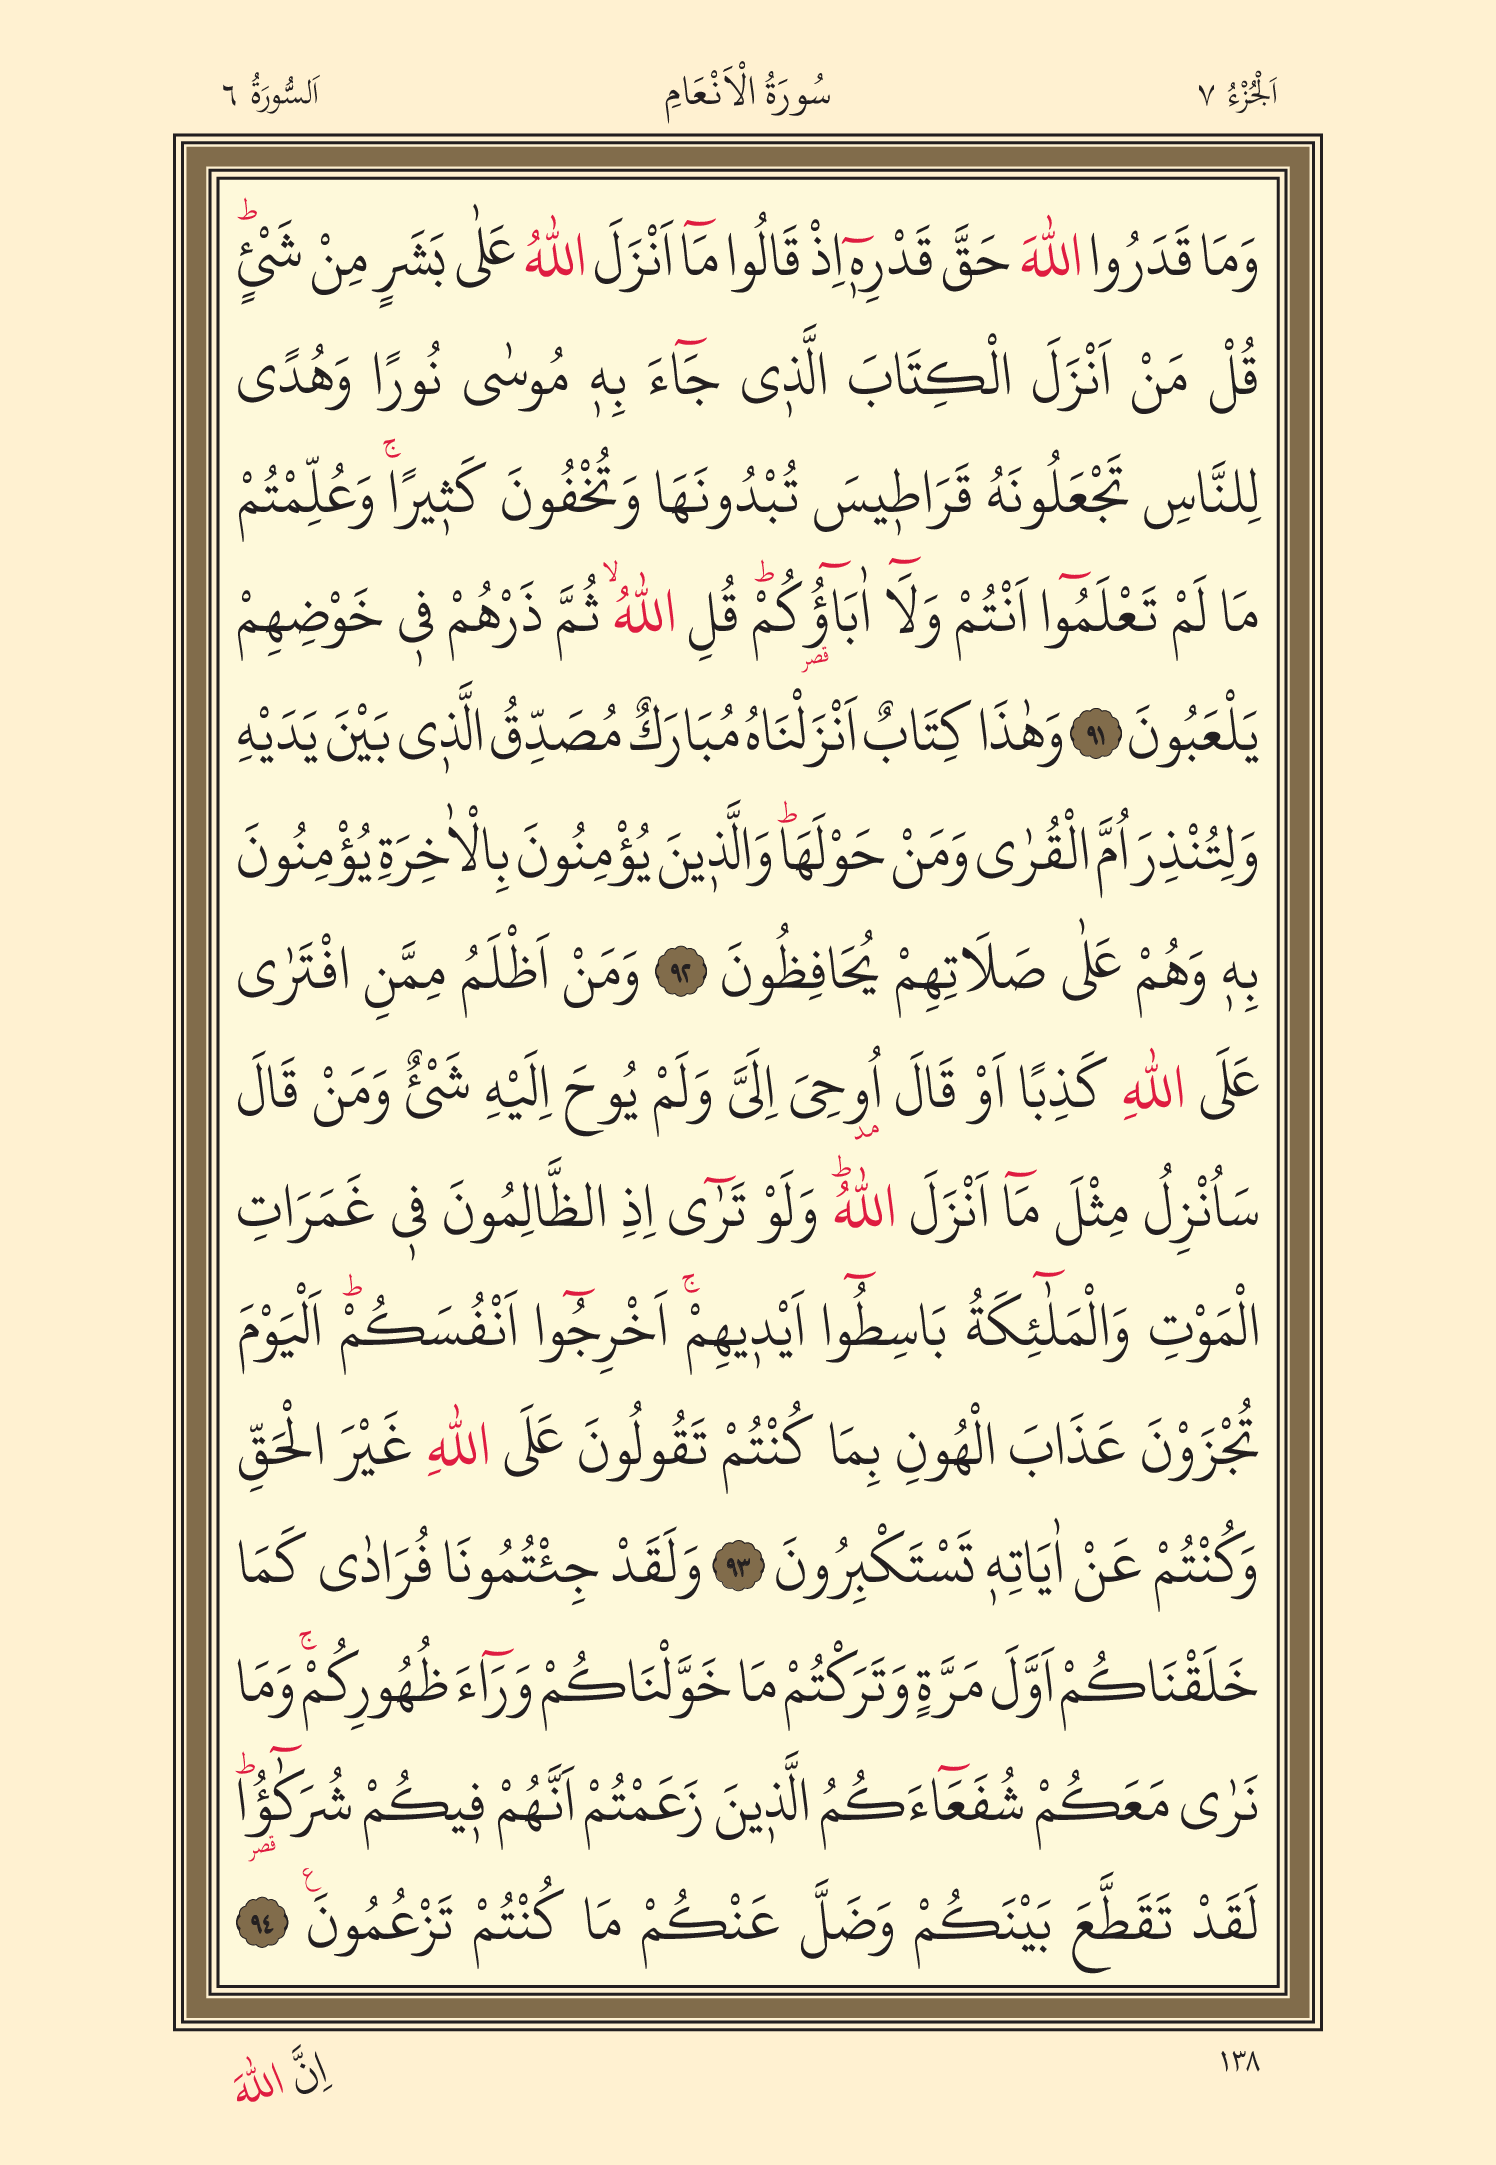 اَلْجُزْءُ ٧ سُورَةُ الْاَنْعَامِ اَلسُّورَةُ ٦
وَمَا قَدَرُوا اللّٰهَ حَقَّ قَدْرِهٖٓ اِذْ قَالُوا مَٓا اَنْزَلَ اللّٰهُ عَلٰى بَشَرٍ مِنْ شَیْءٍۜ
قُلْ مَنْ اَنْزَلَ الْكِتَابَ الَّذٖى جَٓاءَ بِهٖ مُوسٰى نُورًا وَهُدًى
لِلنَّاسِ تَجْعَلُونَهُ قَرَاطٖيسَ تُبْدُونَهَا وَتُخْفُونَ كَثٖيرًاۚ وَعُلِّمْتُمْ
مَا لَمْ تَعْلَمُٓوا اَنْتُمْ وَلَٓا اٰبَٓاؤُ۬كُمْۜ قُلِ اللّٰهُۙ ثُمَّ ذَرْهُمْ فٖى خَوْضِهِمْ
قصر
يَلْعَبُونَ ٩١ وَهٰذَا كِتَابٌ اَنْزَلْنَاهُ مُبَارَكٌ مُصَدِّقُ الَّذٖى بَيْنَ يَدَيْهِ
وَلِتُنْذِرَ اُمَّ الْقُرٰى وَمَنْ حَوْلَهَاۜ وَالَّذٖينَ يُؤْمِنُونَ بِالْاٰخِرَةِ يُؤْمِنُونَ
بِهٖ وَهُمْ عَلٰى صَلَاتِهِمْ يُحَافِظُونَ ٩٢ وَمَنْ اَظْلَمُ مِمَّنِ افْتَرٰى
عَلَى اللّٰهِ كَذِبًا اَوْ قَالَ اُوحِىَ اِلَىَّ وَلَمْ يُوحَ اِلَيْهِ شَیْءٌ وَمَنْ قَالَ
مد
سَاُنْزِلُ مِثْلَ مَٓا اَنْزَلَ اللّٰهُۜ وَلَوْ تَرٰٓى اِذِ الظَّالِمُونَ فٖى غَمَرَاتِ
الْمَوْتِ وَالْمَلٰٓئِكَةُ بَاسِطُٓوا اَيْدٖيهِمْۚ اَخْرِجُٓوا اَنْفُسَكُمْۜ اَلْيَوْمَ
تُجْزَوْنَ عَذَابَ الْهُونِ بِمَا كُنْتُمْ تَقُولُونَ عَلَى اللّٰهِ غَيْرَ الْحَقِّ
وَكُنْتُمْ عَنْ اٰيَاتِهٖ تَسْتَكْبِرُونَ ٩٣ وَلَقَدْ جِئْتُمُونَا فُرَادٰى كَمَا
خَلَقْنَاكُمْ اَوَّلَ مَرَّةٍ وَتَرَكْتُمْ مَا خَوَّلْنَاكُمْ وَرَٓاءَ ظُهُورِكُمْۚ وَمَا
نَرٰى مَعَكُمْ شُفَعَٓاءَكُمُ الَّذٖينَ زَعَمْتُمْ اَنَّهُمْ فٖيكُمْ شُرَكٰٓؤُ۬اۜ
قصر
لَقَدْ تَقَطَّعَ بَيْنَكُمْ وَضَلَّ عَنْكُمْ مَا كُنْتُمْ تَزْعُمُونَ ع ٩٤
١٣٨ اِنَّ اللّٰهَ